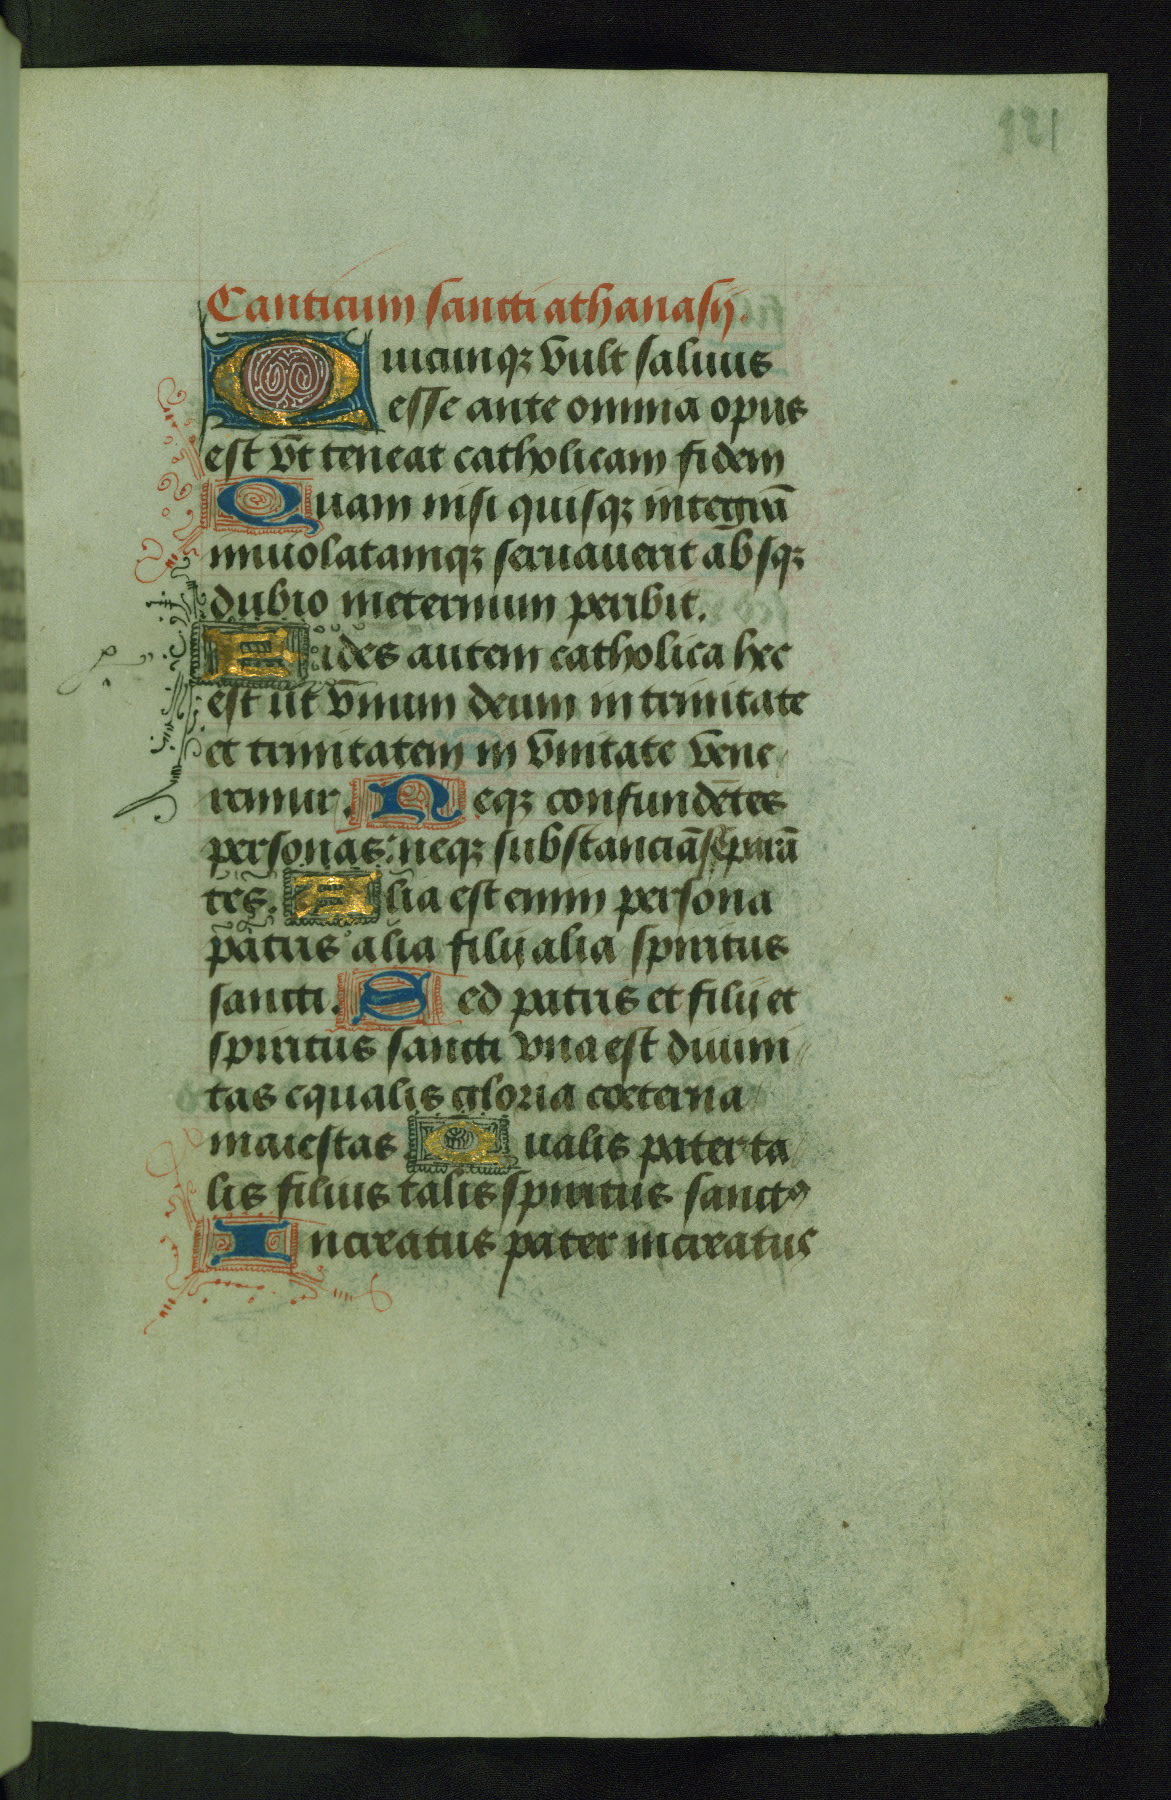 121
Canticum sancti athanasij.
Quicunqꝫ vult saluus
esse ante omnia opus
est vt teneat catholicam fidem
Quam nisi quisqꝫ integrā
inuiolatamqꝫ seruauerit absqꝫ
dubio ineternum peribit.
Fides autem catholica hec
est ut vnum deum in trinitate
et trinitatem in vnitate vene
remur. Neqꝫ confundētes
personas: neqꝫ substanciā sepārā
tes. Alia est enim persona
patris alia filij alia spiritus
sancti. Sed patris et filij et
spiritus sancti vna est diuini
tas equalis gloria coeterna
maiestas. Qualis pater ta
lis filius talis spiritus sanctꝰ
Increatus pater increatus